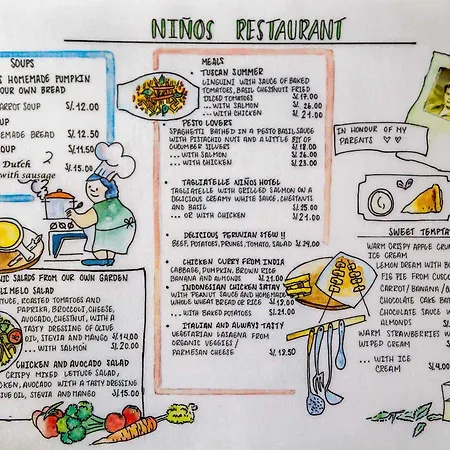 NIÑOS RESTAURANT
SOUPS
S HOMEMADE PUMPKIN
OUR OWN BREAD
ARROT SOUP S/. 12.00
UP
EMADE BREAD S/. 12.50
OUP S/. 11.50
Dutch
with sausage S/. 15.00
NIC SALADS FROM OUR OWN GARDEN
LI MELO SALAD
TUCE, ROASTED TOMATOES AND
PAPRIKA, BROCCOLI, CHEESE,
AVOCADO, CHESTNUT, WITH A
TASTY DRESSING OF OLIVE
OIL, STEVIA AND MANGO S/. 14.00
... WITH SALMON S/. 20.00
CHICKEN AND AVOCADO SALAD
CRISPY MIXED LETTUCE SALAD,
CKEN, AVOCADO WITH A TASTY DRESSING
LIVE OIL, STEVIA AND MANGO S/. 15.00
MEALS
• TUSCAN SUMMER
LINGUINI WITH SAUCE OF BAKED
TOMATOES, BASIL, CHESTNUTS FRIED
DICED TOMATOES S/. 17.00
... WITH SALMON S/. 26.00
... WITH CHICKEN S/. 21.00
• PESTO LOVERS
SPAGHETTI BATHED IN A PESTO BASIL SAUCE
WITH PISTACHIO NUTS AND A LITTLE BIT OF
CUCUMBER SLIVERS S/. 18.00
... WITH SALMON S/. 26.00
... WITH CHICKEN S/. 23.00
• TAGLIATELLE NIÑOS HOTEL
TAGLIATELLE WITH GRILLED SALMON ON A
DELICIOUS CREAMY WHITE SAUCE, CHESTNUTS
AND BASIL S/. 25.00
... OR WITH CHICKEN S/. 21.00
DELICIOUS PERUVIAN STEW !!
BEEF, POTATOES, PRUNES, TOMATO, SALAD S/. 24.00
• CHICKEN CURRY FROM INDIA
CABBAGE, PUMPKIN, BROWN RICE
BANANA AND ALMONDS S/. 21.00
• INDONESIAN CHICKEN SATAY
WITH PEANUT SAUCE AND HOMEMADE
WHOLE WHEAT BREAD OR RICE S/. 19.00
... WITH BAKED POTATOES S/. 21.00
• ITALIAN AND ALWAYS TASTY
VEGETARIAN LASAGNA FROM
ORGANIC VEGGIES /
PARMESAN CHEESE S/. 19.50
IN HONOUR OF MY
PARENTS ♡ ♡
SWEET TEMPTA
WARM CRISPY APPLE CRUM
ICE CREAM
LEMON DREAM WITH B
FIG PIE FROM CUSCO
CARROT/BANANA/O
CHOCOLATE CAKE BA
CHOCOLATE SAUCE W
ALMONDS S/.
WARM STRAWBERRIES W
WIPED CREAM
... WITH ICE
CREAM S/4.00